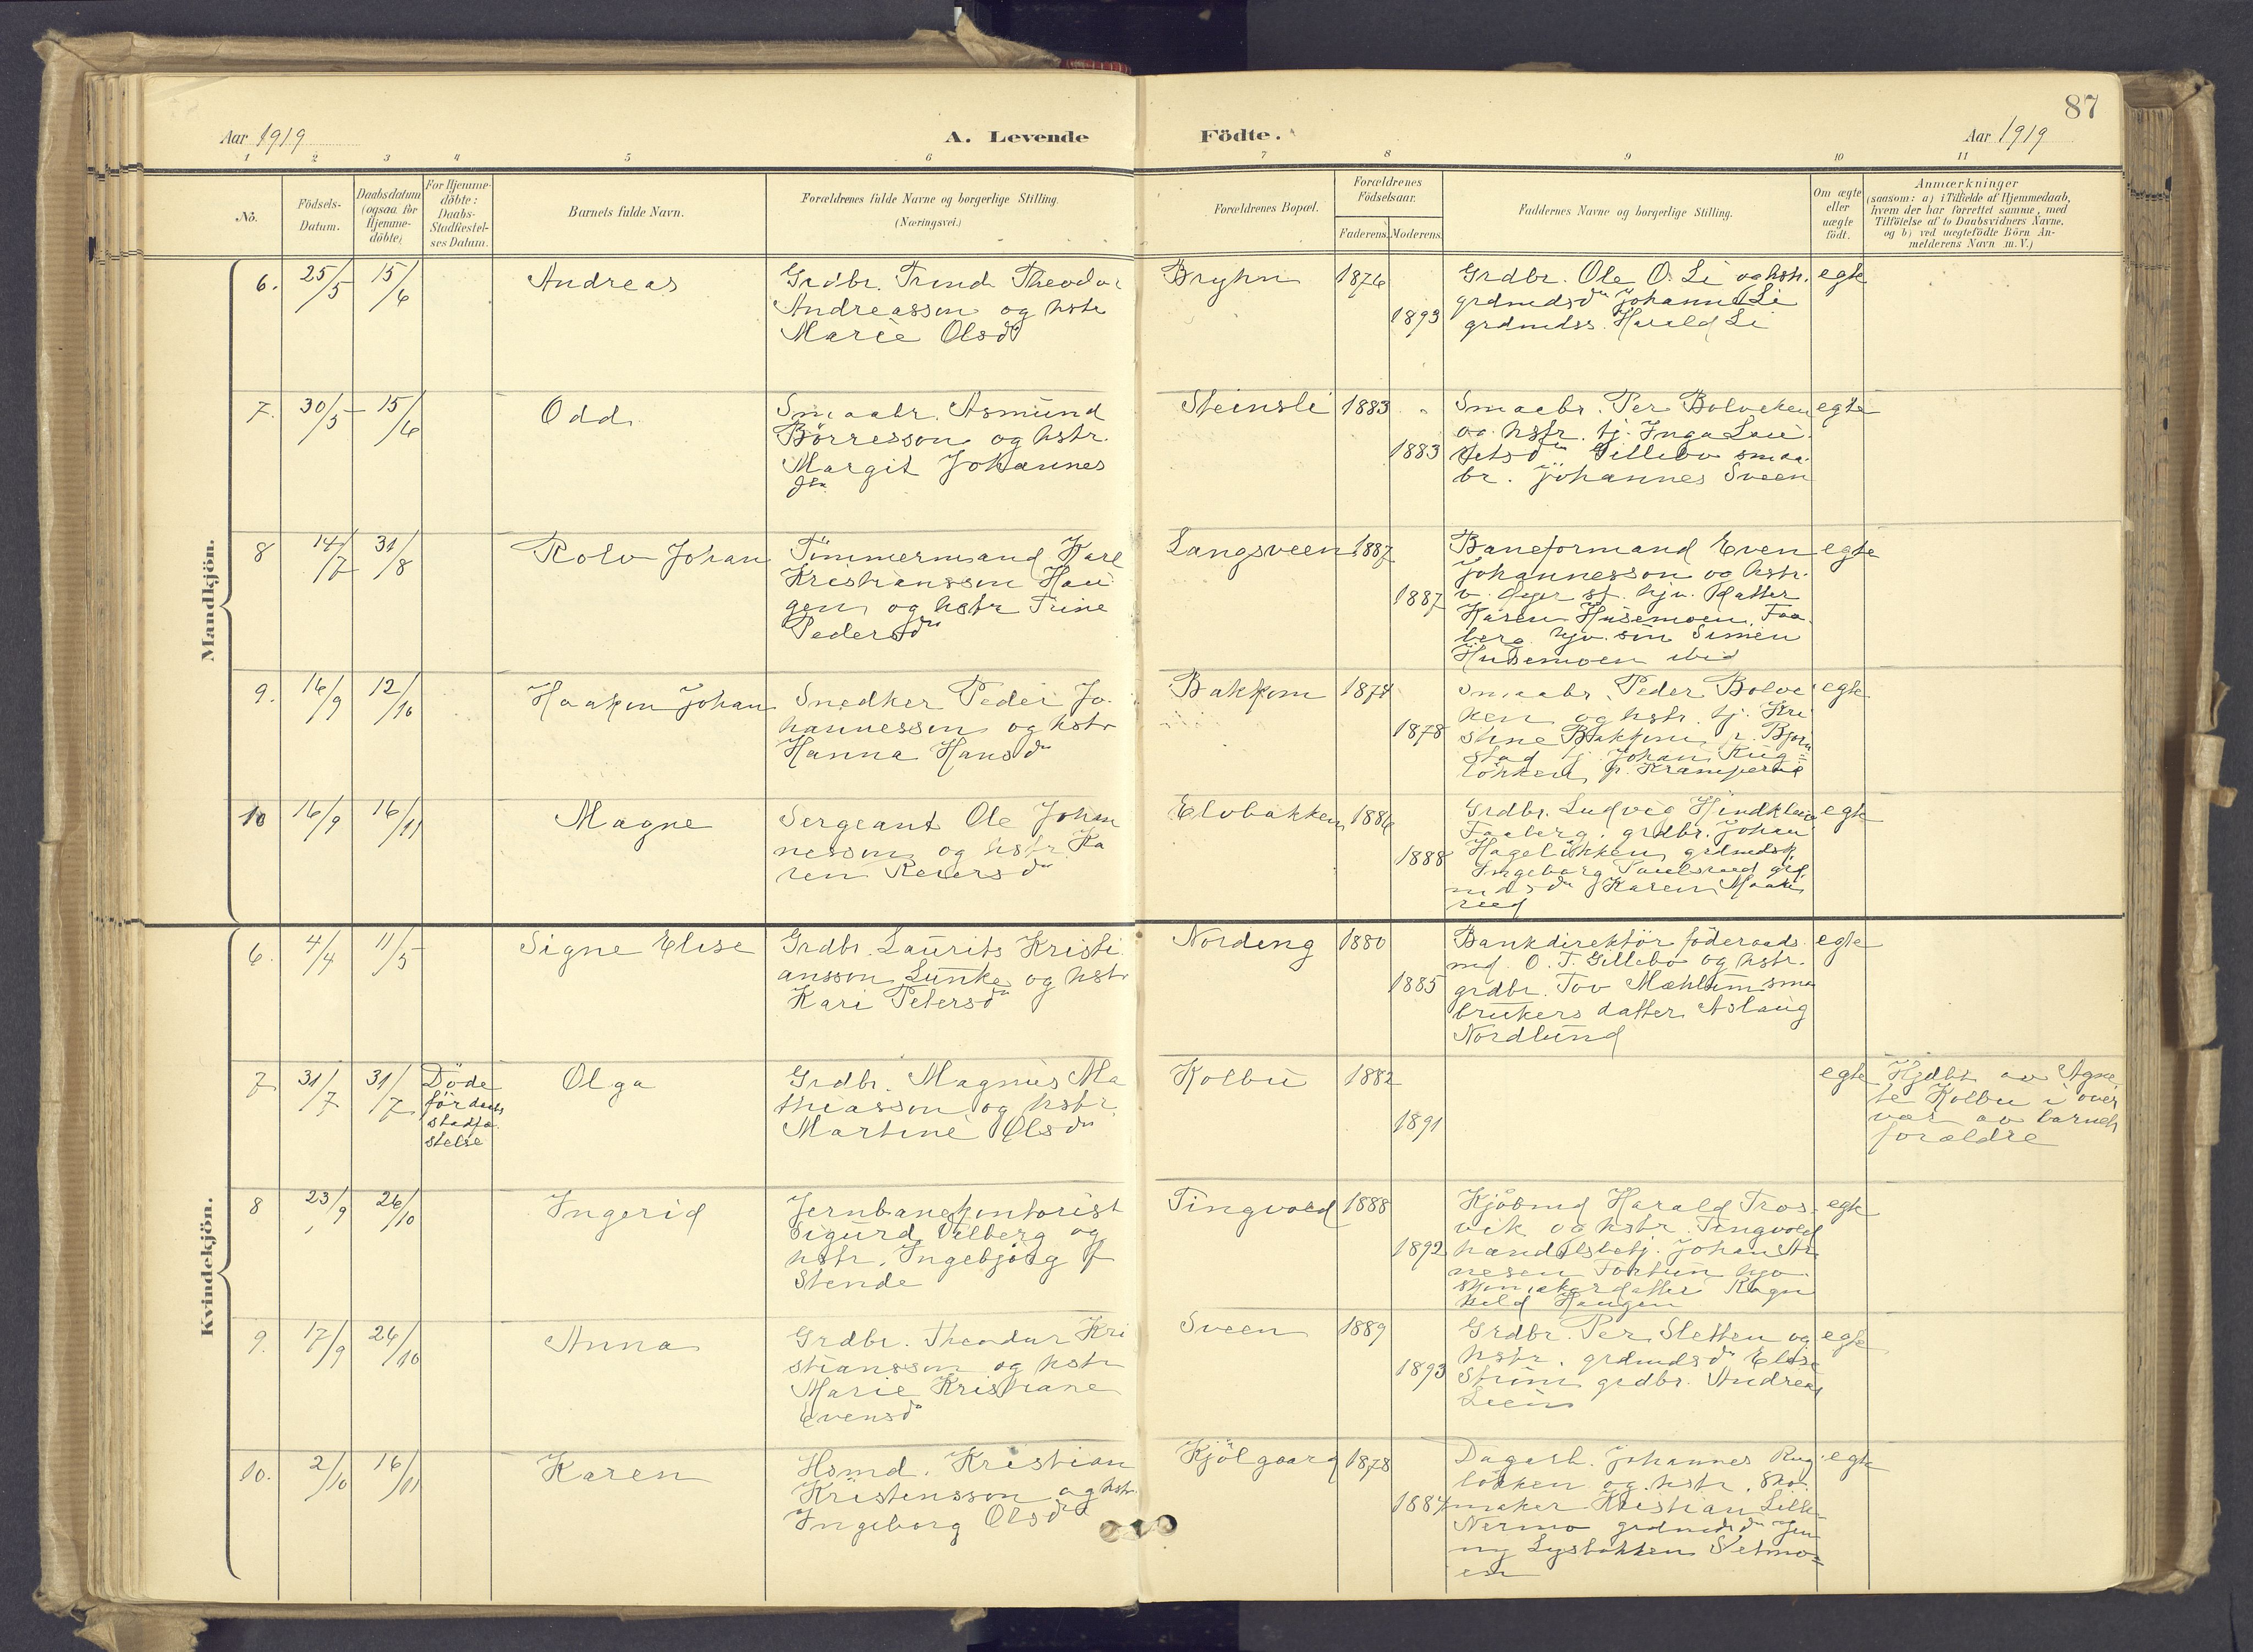 87
Aar 1919
A. Levende
Födte.
Aar 1919
1 2 3 4 5 6 7 8 9 10 11
No.
Födsels-
Datum.
Daabsdatum
(ogsaa for
Hjemme-
döbte)
For Hjemme-
döbte:
Daabs-
Stadfæstel-
ses Datum.
Barnets fulde Navn.
Forældrenes fulde Navne og borgerlige Stilling.
(Næringsvei.)
Forældrenes Bopæl.
Forældrenes
Födselsaar.
Faderens.
Moderens.
Faddernes Navne og borgerlige Stilling.
Om ægte
eller
uægte
födt.
Anmærkninger
(saasom: a) i Tilfælde af Hjemmedaab,
hvem der har forrettet samme, med
Tilföielse af to Daabsvidners Navne,
og b) ved uægtefödte Börn An-
melderens Navn m. V.)
Mandkjön.
6. 25/5 15/6
Andreas
Grdbr. Trond Theodor
Andreasson og hstr
Marie Olsdr
Bryhn
1876
1893
Grdbr. Ole O. Li og hstr.
grdmdsdr Johanne Li
grdmdss. Harald Li
egte
7. 30/5 15/6
Odd
Smaabr. Asmund
Börresson og hstr.
Margit Johannes
dtr.
Steinsli
1883
1883
Smaabr. Per Bolveken
og hstr. tj. Inga Lau
Gillebo smaa-
br. Johannes Sveen
egte
8 14/7 31/8
Rolv Johan
Tömmermand Karl
Kristiansson Hau
gen og hstr Trine
Pedersdr
Langsveen
1887
1887
Baneformand Even
Johannesson og hstr.
v. Øyer st. hjv. datter
Karen Husemoen, Faa-
berg hjv. sön Simen
Husemoen ibid
egte
9. 16/9 12/10
Haakon Johan
Snedker Peder Jo-
hannesson og hstr
Hanna Hansdr
Bakkom
1874
1878
Smaabr. Peder Bolve
ken og hstr. tj. Kri
stine Bakkom, Björn
stad tj. Johan Rug=
lökken p. Kramperud
egte
10 16/9 16/11
Magne
Sergeant Ole Johan
nesson og hstr Ka
ren Reiersdr
Elvbakken
1886
1888
Grdbr. Ludvig Hindklev
Faaberg, grdbr. Johan
Hagelökken grdmdsk.
Ingeborg Paulsrud grd
mdsdr Karen Maake
rud
egte
Kvindekjön.
6. 4/4 11/5
Signe Elise
Grdbr. Laurits Kristi
ansson Lunke og hstr
Kari Petersdr
Nordeng
1880
1885
Bankdirektör föderaads-
md. O. T. Gillebo og hstr.
grdbr. Tov Mæhlum sma
brukers datter Aslaug
Nordlund
egte
7 31/7 31/7
Döde
för daabs
stadfæ-
stelse
Olga
Grdbr. Magnus Ma
thiasson og hstr.
Martine Olsdr
Kolbu
1882
1891
egte
Hjdbt av Agne
te Kolbu i over
vær av barnets
forældre
8 23/9 26/10
Ingerid
Jernbanekontorist
Sigurd Vilberg og
hstr. Ingebjörg f
Stende
Tingvold
1888
1892
Kjöbmd Harald Tros-
vik og hstr. Tingvold
handelsbetj. Johan Ar
nesen Fortun hjv.
skomakerdatter Ragn
hild Haugen
egte
9. 17/9 26/10
Anna
Grdbr. Theodor Kri
stiansson og hstr
Marie Kristiane
Evensdr
Sveen
1889
1893
Grdbr. Per Sletten og
hstr. grdmdsdr Elise
Strum grdbr. Andreas
Lien
egte
10. 2/10 16/11
Karen
Hsmd. Kristian
Kristensson og hstr.
Ingeborg Olsdr
Kjölgaard
1878
1884
Dagarb. Johannes Rug-
lökken og hstr. sko-
maker Kristian Lille
Nermo grdmdsdr Jen
ny Lysbakken Vetmo=
en
egte